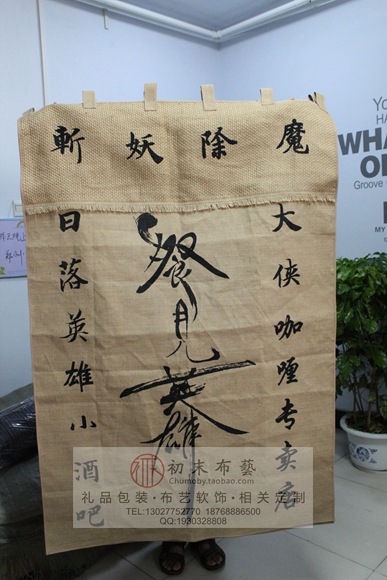 斬妖除魔
大侠咖喱专卖店
餐见英雄
日落英雄小酒吧
初末布藝
Chumoby.taobao.com
礼品包装·布艺软饰·相关定制
TEL:13027752770 18768886500
QQ:1930328808
YO
HA
WHA
O
Groove
MY